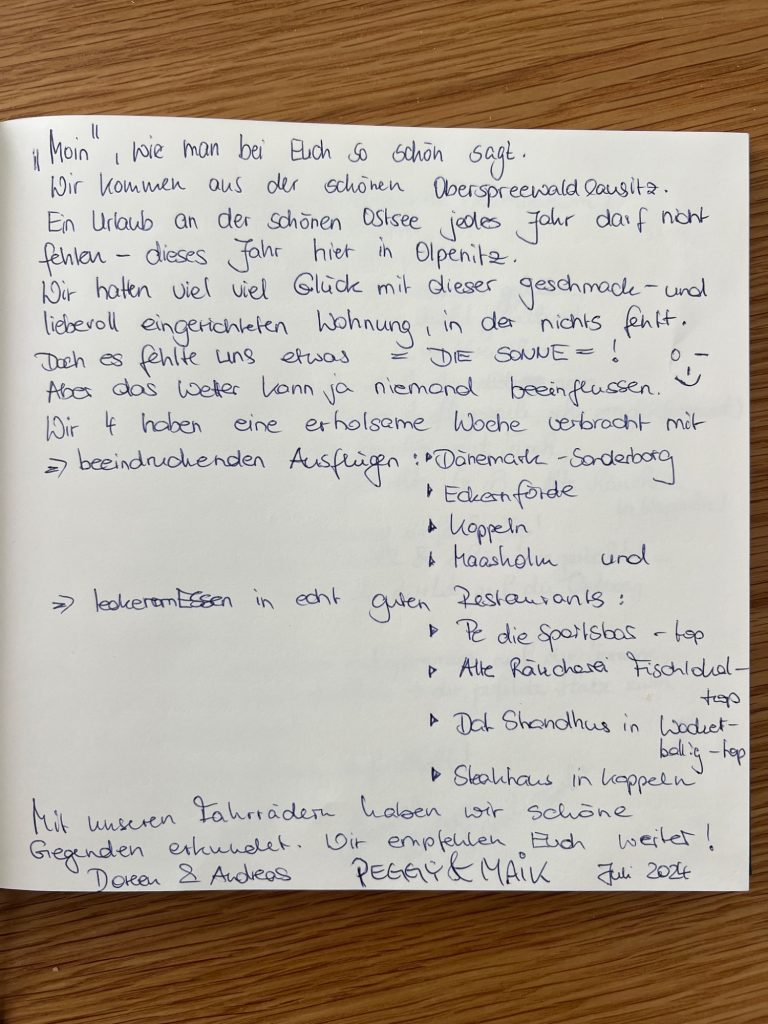 „Moin", wie man bei Euch so schön sagt.
Wir kommen aus der schönen Oberspreewald Lausitz.
Ein Urlaub an der schönen Ostsee jedes Jahr darf nicht
fehlen – dieses Jahr hier in Olpenitz.
Wir hatten viel viel Glück mit dieser geschmack- und
liebevoll eingerichteten Wohnung, in der nichts fehlt.
Doch es fehlte uns etwas = DIE SONNE = !
Aber das Wetter kann ja niemand beeinflussen.
Wir 4 haben eine erholsame Woche verbracht mit
=> beeindruckenden Ausflügen : ▸ Dänemark - Sonderborg
▸ Eckernförde
▸ Kappeln
▸ Maasholm und
=> leckerem Essen in echt guten Restaurants :
▸ die Sportsbar - top
▸ Alte Räucherei Fischlokal -
top
▸ Dat Strandhus in Wacker-
ballig - top
▸ Steakhaus in Kappeln
Mit unseren Fahrrädern haben wir schöne
Gegenden erkundet. Wir empfehlen Euch weiter!
Doreen & Andreas PEGGY & MAIK Juli 2024